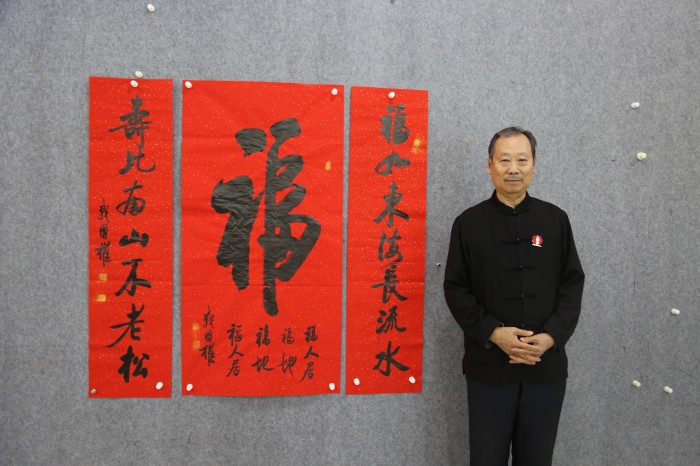 福如東海長流水
福
福人居
福地
福地
福人居
壽比南山不老松